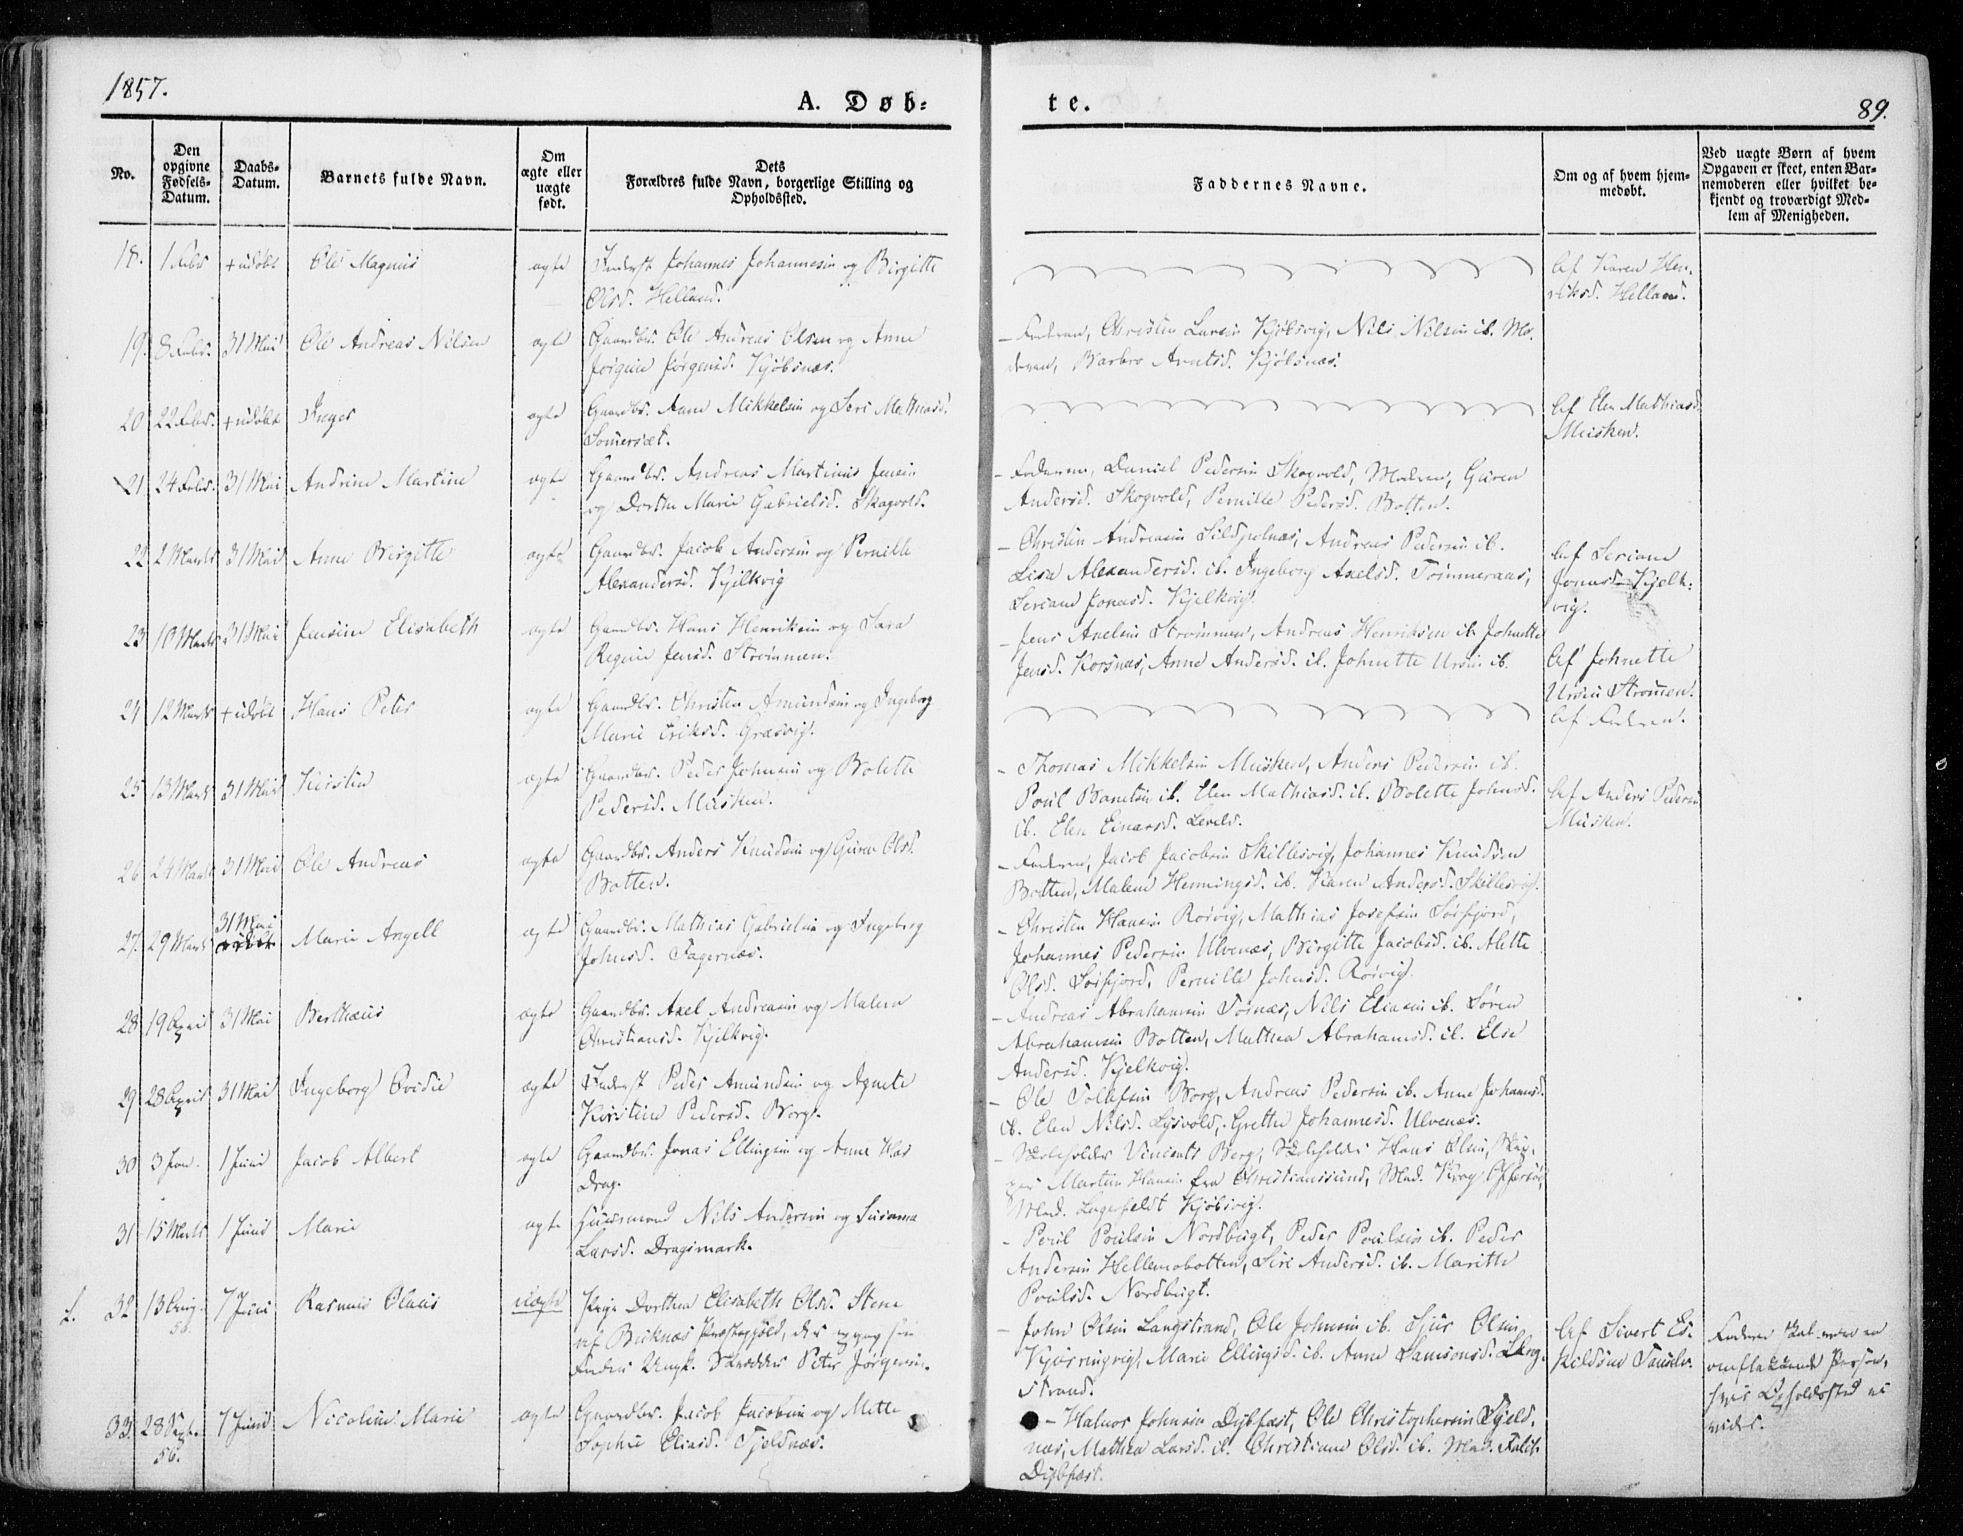 1857.
A. Døb-
te.
89.
No.
Den
opgivne
Fødsels-
Datum.
Daabs-
Datum.
Barnets fulde Navn.
Om
ægte eller
uægte
født.
Dets
Forældres fulde Navn, borgerlige Stilling og
Opholdssted.
Faddernes Navne.
Om og af hvem hjem-
medøbt.
Ved uægte Børn af hvem
Opgaven er skeet, enten Bar-
nemoderen eller hvilket be-
kjendt og troværdigt Med-
lem af Menigheden.
18. 1 Febr + udøbt Ole Magnus ægte Inderst Johannes Johannesen og Birgitte
Olsd. Helland.
Af Karen Hen-
riksd. Helland.
19. 8 Febr. 31 Mai Ole Andreas Nilsen ægte Gaardbr. Ole Andreas Olsen og Anne
Jørgine Jørgensd. Kjøbsnæs.
- Faderen, Christen Larsen Kjøbsvig, Nils Nilsen ib. Mo-
deren, Barbro Arntsd. Kjøbsnæs.
20 22 Febr. + udøbt Inger ægte Gaardbr. Aane Mikkelsen og Seri Mathiasd.
Somerset.
Af Elen Mathiasd.
Musken.
21 24 Febr. 31 Mai Andrine Martine ægte Gaardbr. Andreas Martinus Jensen
og Dorthe Marie Gabrielsd. Skogvold.
- Faderen, Daniel Pedersen Skogvold, Moderen, Guren
Andersd. Skogvold, Pernille Pedersd. Botten.
22 2 Marts 31 Mai Anne Birgitte ægte Gaardbr. Jacob Andersen og Pernille
Alexandersd. Kjelkvig
- Christen Andreasen Sildpolnæs, Andreas Pedersen ib.
Lisa Alexandersd. ib. Ingeborg Axelsd. Tømmeraas,
Seriane Jonasd. Kjelkvig.
Af Seriane
Jonasd. Kjelk-
vig.
23 10 Marts 31 Mai Jensine Elisabeth ægte Gaardbr. Hans Henriksen og Sara
Regine Jensd. Strømmen.
- Jens Axelsen Strømmen, Andreas Henriksen ib. Johnette
Jensd. Korsnæs, Anne Andersd. ib. Johnette Ursin ib.
Af Johnette
Ursin Strømen.
24 12 Marts + udøbt Hans Peter ægte Gaardbr. Christen Amundsen og Ingeborg
Marie Eriksd. Græsvig.
Af Faderen.
25 13 Marts 31 Mai Kirstin ægte Gaardbr. Peder Johnsen og Bolette
Pedersd. Musken.
- Thomas Mikkelsen Musken, Anders Pedersen ib.
Poul Baretsen ib. Elen Mathiasd. ib. Bolette Johnsd.
ib. Elen Einarsd. Leveld.
Af Anders Pedersen
Musken.
26 24 Marts 31 Mai Ole Andreas ægte Gaardbr. Anders Knudsen og Guren Olsd.
Botten.
- Faderen, Jacob Jacobsen Skillesvig, Johannes Knudsen
Botten, Malene Henningsd. ib. Karen Andersd. Skillesvig.
27. 29 Marts 31 Mai Marie Angell ægte Gaardbr. Mathias Gabrielsen og Ingeborg
Johnsd. Fagernæs.
- Christen Hansen Rørvig, Mathias Josefsen Sørfjord,
Johannes Pedersen Ulvenæs, Birgitte Jacobsd. ib. Alette
Olsd. Sørfjord, Pernille Johnsd. Rørvig.
28 19 April 31 Mai Berthæus ægte Gaardbr. Axel Andreasen og Malene
Christiansd. Kjelkvig.
- Andreas Abrahamsen Tørnæs, Nils Eliasen ib. Søren
Abrahamsen Botten, Mathea Abrahamsd. ib. Else
Andersd. Kjelkvig.
29 28 April 31 Mai Ingeborg Ovidie ægte Inderst Peder Amundsen og Agnete
Kirstine Pedersd. Borg.
- Ole Tollefsen Borg, Andreas Pedersen ib. Anne Johannesd.
ib. Elen Nilsd. Lysvold, Grethe Johannesd. Ulvenæs.
30 3 Jan. 1 Juni Jacob Albert ægte Gaardbr. Jonas Ellingsen og Anne
Drag.
- Skoleholder Vincents Berg, Skoleholder Hans Olsen,
Martin Hansen fra Christianssund, Mad. Krog
Mad. Lagefeldt Kjøbsvig.
31 15 Marts 1 Juni Marie ægte Huusmand Nils Andersen og Susanna
Larsd. Dragsmark.
- Poul Poulsen Nordbugt, Peder Poulsen ib. Peder
Andersen Hellemobotten, Siri Andersd. ib. Marithe
Poulsd. Nordbugt.
32 13 Aug. 56. 7 Juni Rasmus Olaus uægte Pige Dorthea Elisabeth Olsd. Stene
af Buknæs Præstegjeld,
Fader Ungk. Skrædder Peter Jørgensen.
- John Olsen Langstrand, Ole Johnsen ib. Sjur Olsen
Kjærringvig, Marie Ellingsd. ib. Anne Samsonsd. Lang-
strand.
Af Sivert Es-
kildsen
Faderen skal være en
omflakkende Person,
hvis Opholdssted ei
vides.
33. 28 Sept. 56. 7 Juni Nicoline Marie ægte Gaardbr. Jacob Jacobsen og Mette
Sophie Eliasd. Fjeldnæs.
- Halvor Johnsen Dybfæst, Ole Christophersen Fjeld-
næs, Mathea Larsd. ib. Christiane Olsd. ib. Mad. Falch
Dybfæst.